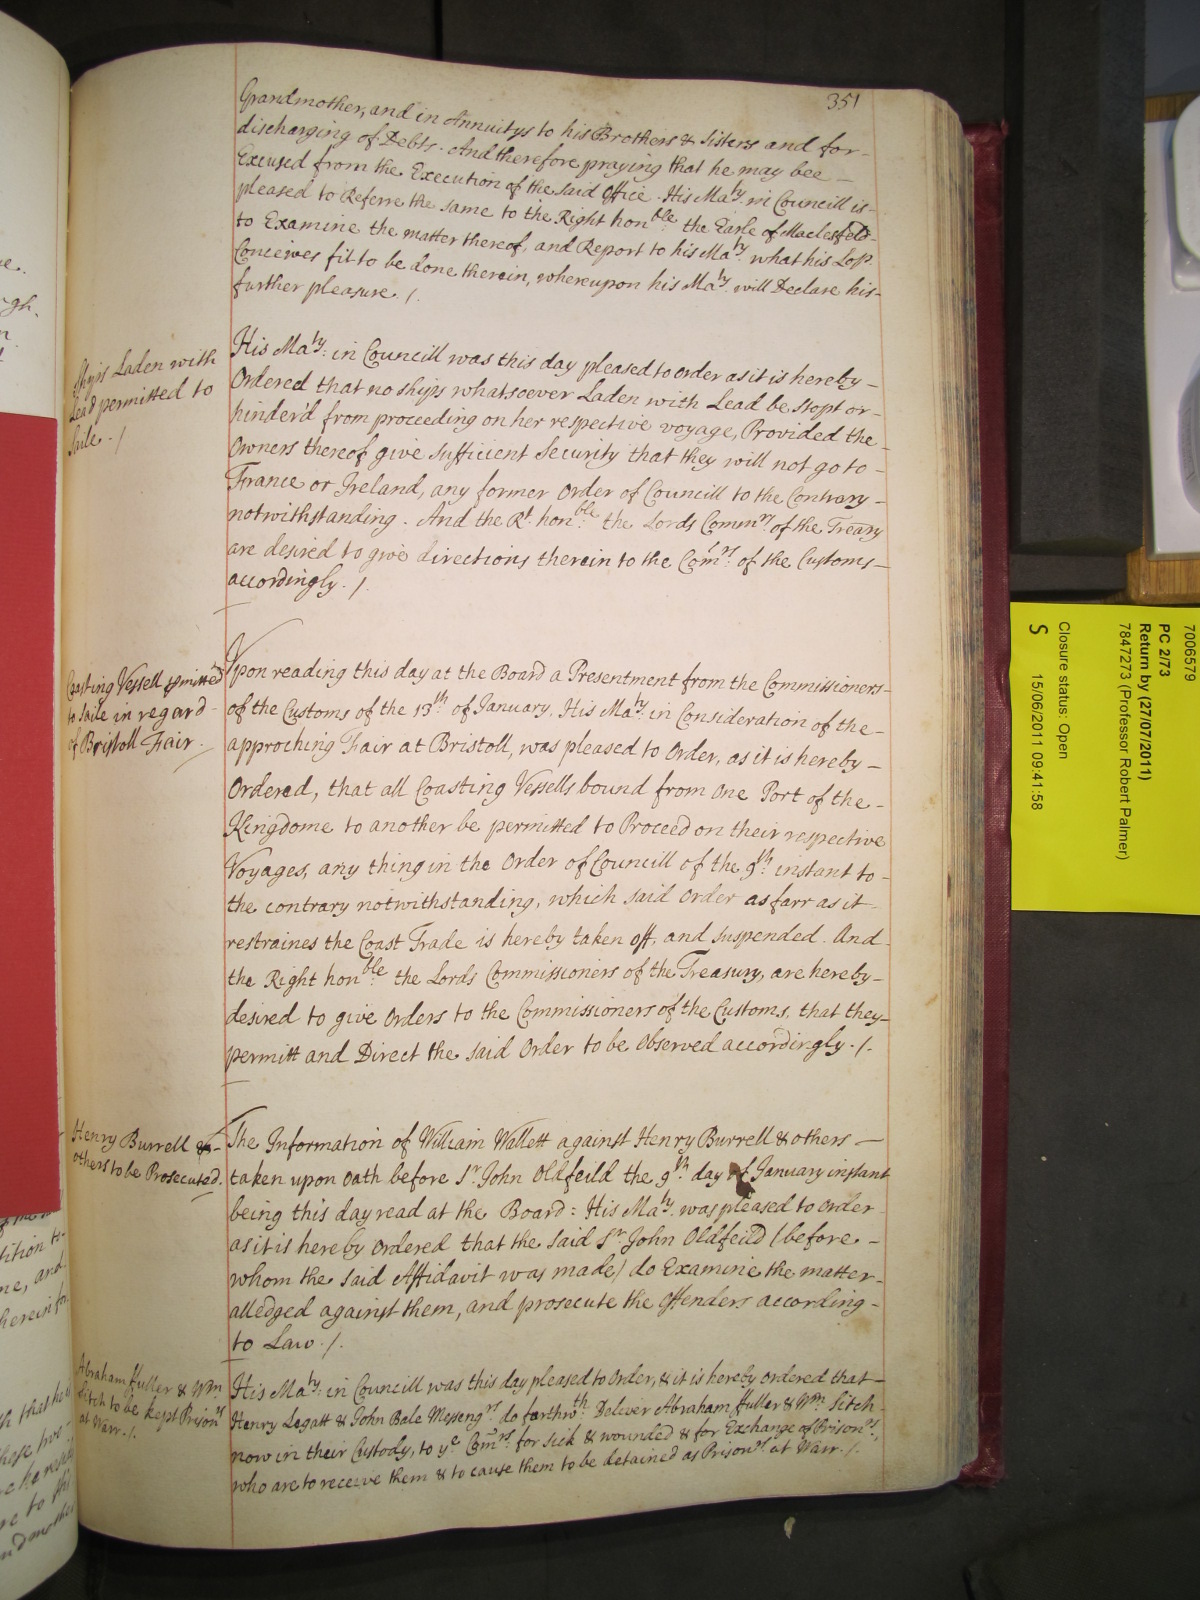 351
Grandmother, and in Annuitys to his Brothers & Sisters and for-
discharging of Debts. And therefore praying that he may bee-
Excused from the Execution of the said Office. His Maty. in Councill is-
pleased to Referre the same to the Right honble. the Earle of Maclesfeld-
to Examine the matter thereof, and Report to his Maty. what his Lop.
Conceives fit to be done therein, whereupon his Maty. will Declare his-
further pleasure. /.
Ships Laden with
Lead permitted to
Saile. /
His Maty. in Councill was this day pleased to order as it is hereby-
Ordered that no ships whatsoever Laden with Lead be Stopt or-
hinder'd from proceeding on her respective voyage, Provided the-
Owners thereof give sufficient Security that they will not go to-
France or Ireland, any former Order of Councill to the Contrary-
notwithstanding. And the Rt. honble. the Lords Commrs. of the Treãry
are desired to give directions therein to the Comrs. of the Customs-
accordingly. /.
Coasting Vessell pmitted
to Saile in regard-
of Bristoll Fair.
Upon reading this day at the Board a Presentment from the Commissioners-
of the Customs of the 13th of January, His Maty. in Consideration of the-
approching Fair at Bristoll, was pleased to Order, as it is hereby-
Ordered, that all Coasting Vessells bound from One Port of the-
Kingdome to another be permitted to Proceed on their respective
Voyages, any thing in the Order of Councill of the 9th. instant to-
the contrary notwithstanding, which said Order as farr as it-
restraines the Coast Trade is hereby taken off, and suspended. And-
the Right honble. the Lords Commissioners of the Treasury, are hereby-
desired to give Orders to the Commissioners of the Customs, that they-
permitt and Direct the said Order to be Observed accordingly. /.
Henry Burrell &-
others to be Prosecuted.
The Information of William Wallett against Henry Burrell & others-
taken upon Oath before Sr. John Oldfeild the 9th. day of January instant
being this day read at the Board: His Maty. was pleased to Order-
as it is hereby Ordered that the said Sr. John Oldfeild (before-
whom the said Affidavit was made) do Examine the matter-
alledged against them, and prosecute the Offenders according-
to Law. /.
Abraham fuller & Wm.
Sitch to be kept Prisonrs
at Warr. /.
His Maty. in Councill was this day pleased to Order, & it is hereby ordered that-
Henry Legatt & John Bale Messengrs. do forthwth. Deliver Abraham fuller & Wm. Sitch-
now in their Custody, to ye Comrs. for sick & wounded & for Exchange of Prisonrs.,
who are to receive them & to cause them to be detained as Prisonrs. at Warr. /.
7006579
PC 2/73
Return by (27/07/2011)
7847273 (Professor Robert Palmer)
Closure status: Open
S 15/06/2011 09:41:58